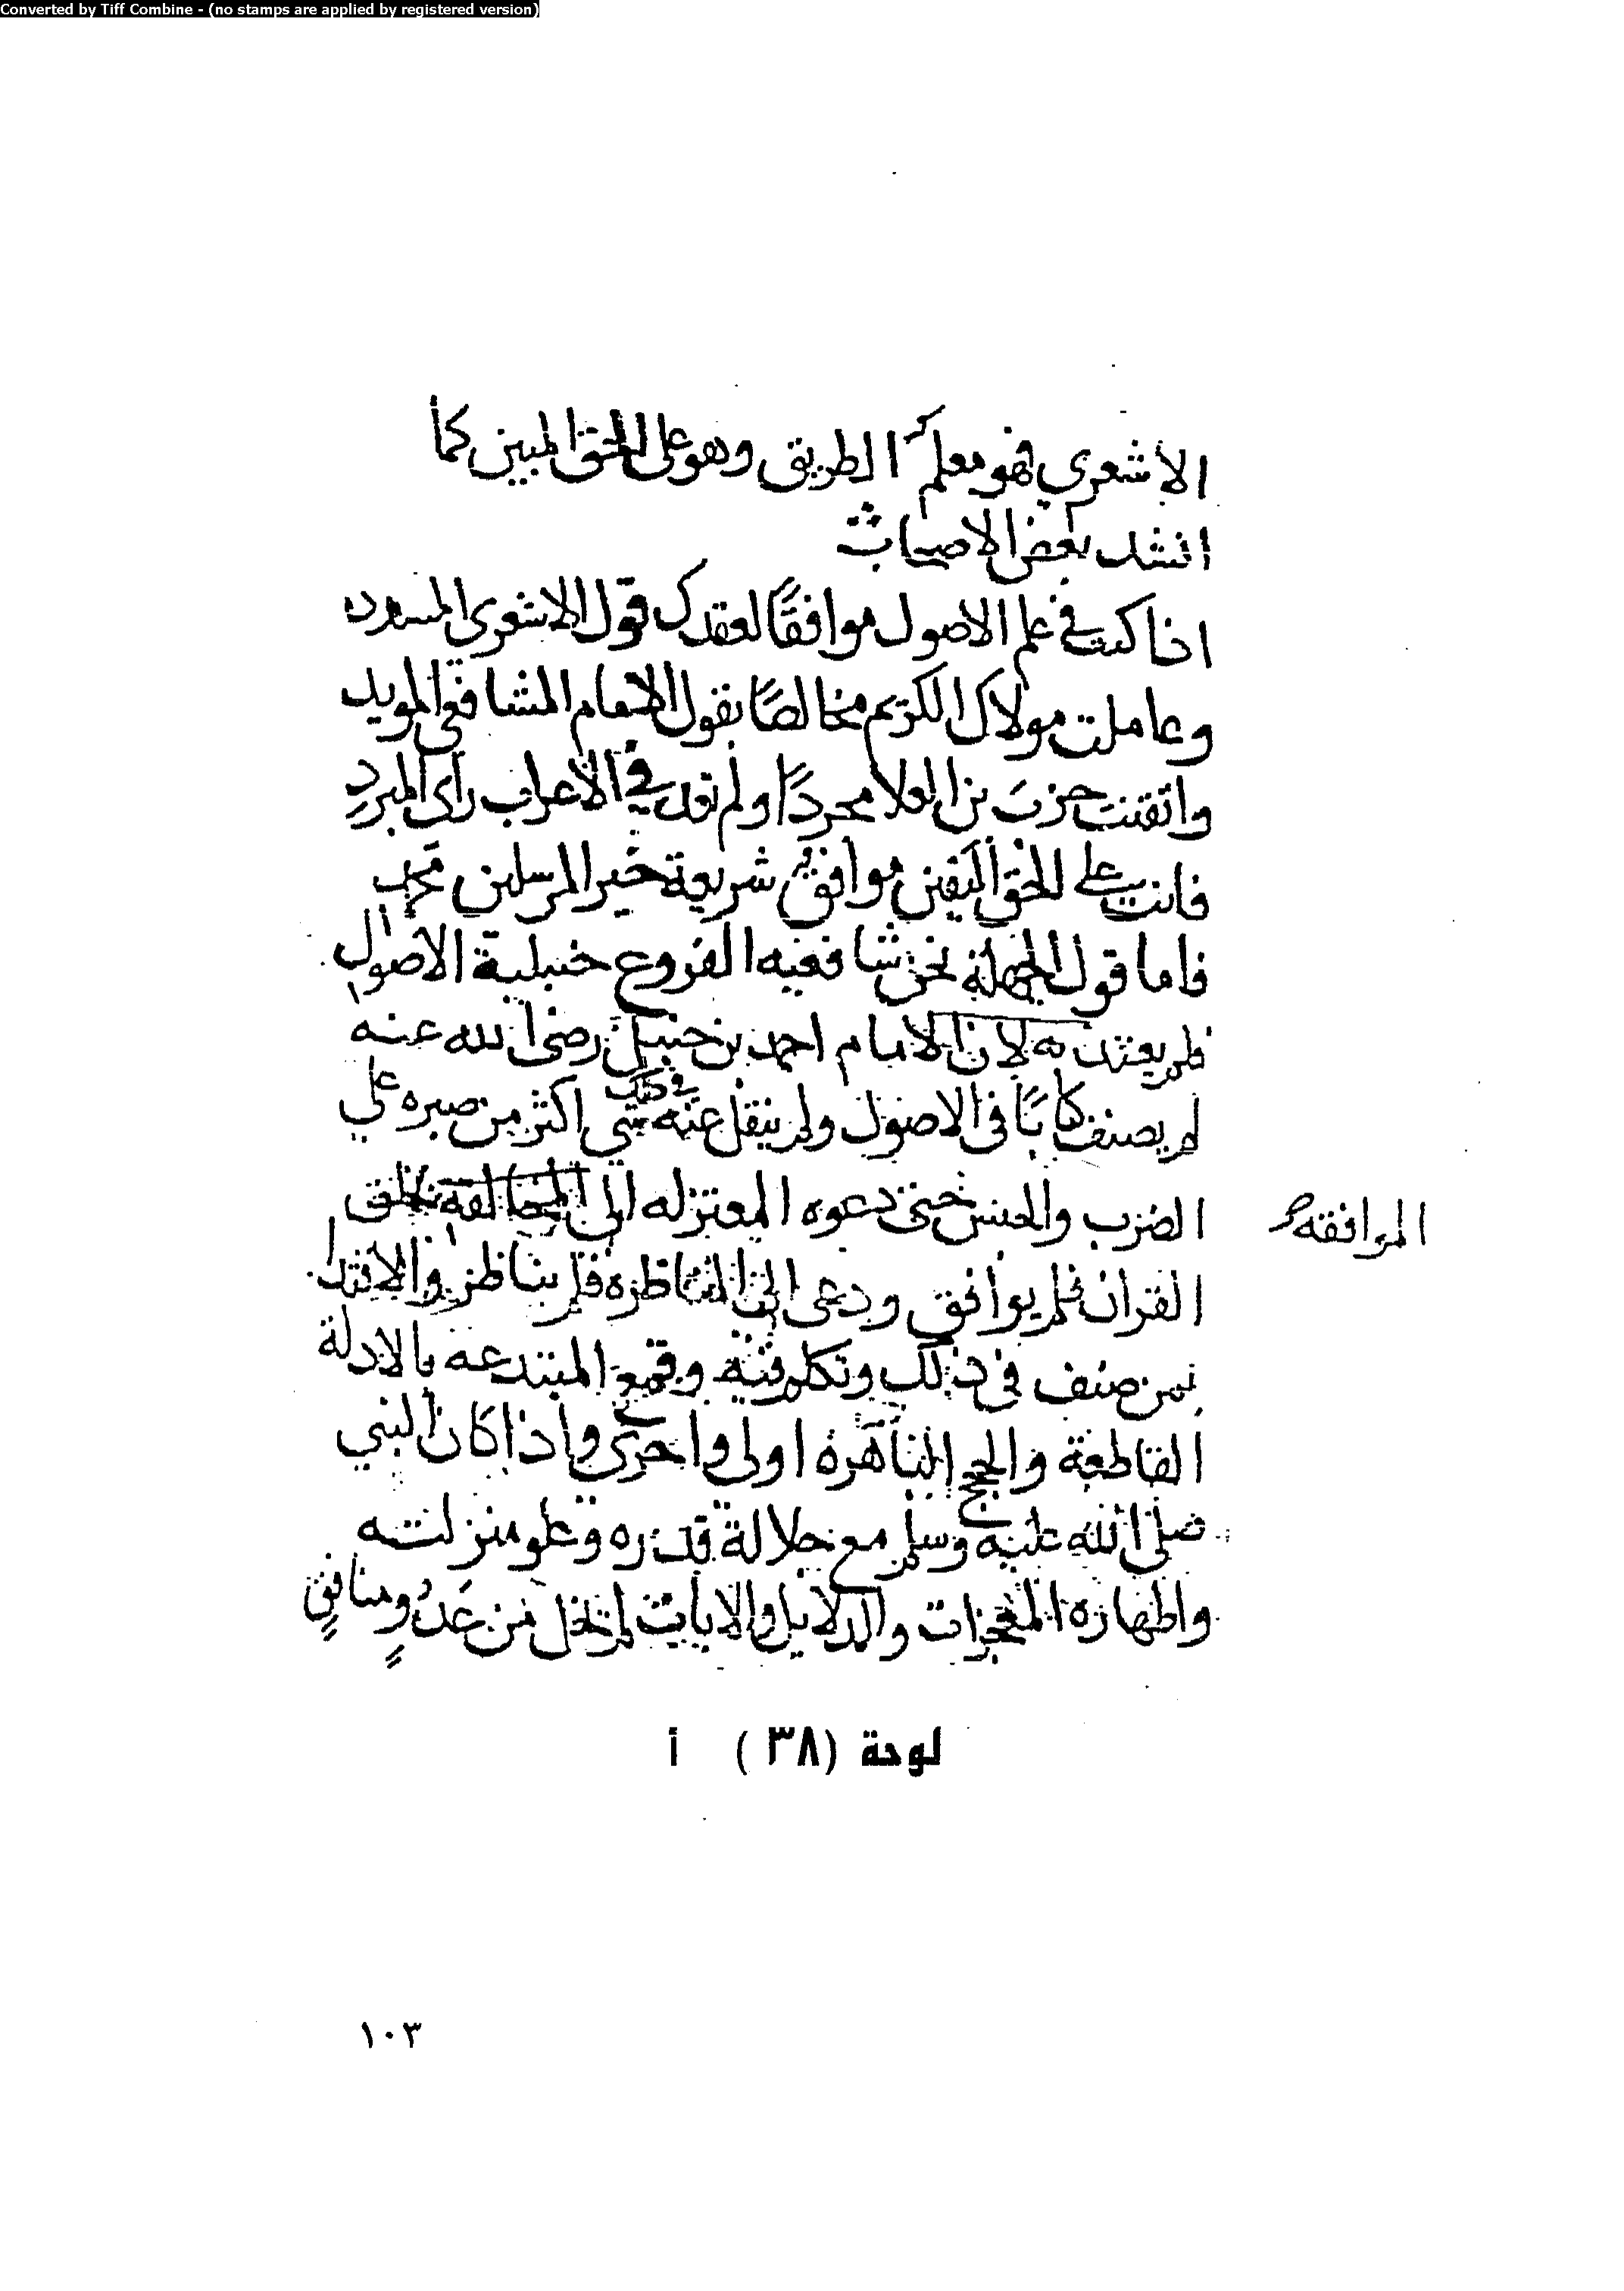 Converted by Tiff Combine - (no stamps are applied by registered version)
الأشعري فهو معلم الطريق وهو على الحق المبين كما
انشد بعض الاصحاب
اذا كنت في علم الاصول موافقًا لعقدك قول الاشعرى المسدد
وعاملت مولاك الكريم مخالصًا بقول الامام الشافعي المويد
واتقنت حرف بن العلا مجردًا ولم تعد في الأعراب رأى المبردِ
فانت على الحق اليقين موافق شريعة خير المرسلين محمد
فاما قول الجهلة نحن شافعية الفروع حنبلية الاصول
فلم يعتد به لان الامام احمد بن حنبل رضى الله عنه
لم يصنف كتابًا في الاصول ولم ينقل عنه في ذلك شى اكثر من صبره على
الضرب والحبس حتى دعوه المعتزله الى المخالفة بخلق
الموافقه
القران فلم يوافق ودعى الى المناظرة فلم يناظر والاقتدا
بمن صنف في ذلك وتكلم فيه وقمع المبتدعه بالادلة
القاطعة والحجج الباهرة اولى واحرى واذا كان النبي
صلى الله عليه وسلم مع جلالة قدره وعلو منزلته
واظهاره المعجزات والدلايل والايات لم تخل من عَدُوٍ ومنافقٍ
لوحة (٣٨) أ
١٠٣